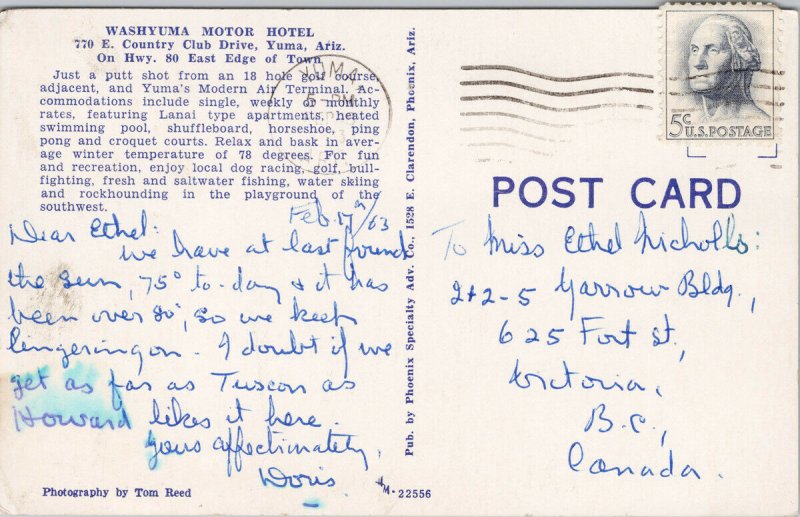 WASHYUMA MOTOR HOTEL
770 E. Country Club Drive, Yuma, Ariz.
On Hwy. 80 East Edge of Town
Just a putt shot from an 18 hole golf course,
adjacent, and Yuma's Modern Air Terminal. Ac-
commodations include single, weekly or monthly
rates, featuring Lanai type apartments, heated
swimming pool, shuffleboard, horseshoe, ping
pong and croquet courts. Relax and bask in aver-
age winter temperature of 78 degrees. For fun
and recreation, enjoy local dog racing, golf, bull-
fighting, fresh and saltwater fishing, water skiing
and rockhounding in the playground of the
southwest.
Feb. 17th/63
Dear Ethel:
We have at last found
the sun, 75° to-day & it has
been over 80°, so we keep
lingering on. I doubt if we
get as far as Tuscon as
Howard likes it here.
Yours affectionately,
Doris.
Photography by Tom Reed
Pub. by Phoenix Specialty Adv. Co., 1528 E. Clarendon, Phoenix, Ariz.
M-22556
YUMA
PM
5c U.S. POSTAGE
POST CARD
To Miss Ethel Nicholls:
212-5 Yarrow Bldg.,
625 Fort St,
Victoria,
B.C.,
Canada.